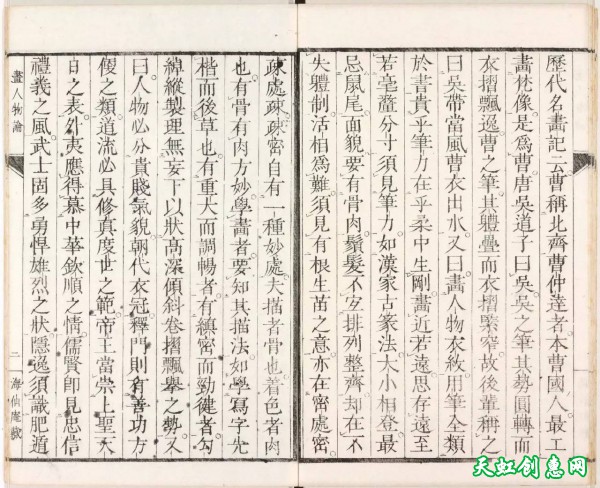 歷代名畫記云曹稱北齊曹仲達者本曹國人最工
畫梵像是爲曹唐吳道子曰吳吳之筆其勢圓轉而
衣摺飄逸曹之筆其體疊而衣摺緊窄故後輩稱之
曰吳帶當風曹衣出水又曰畫人物衣紋用筆全類
於書貴乎筆力在乎柔中生剛畫近若遠思存遠至
若毫釐分寸須見筆力如漢家古篆法大小相登最
忌鼠尾面貌要有骨肉鬚髮不宜排列整齊却在不
失體制活相爲難須見有根生苦之意亦在密處密
疎處疎疎密自有一種妙處夫描者骨也着色者肉
也有骨有肉方妙學畫者要知其描法如學寫字先
楷而後草也有重大而調暢者有縝密而勁健者勾
綽縱製理無妄下以狀高深傾斜卷摺飄擧之勢又
曰人物必分貴賤氣貌朝代衣冠釋門則有善功方
便之類道流必具修真度世之範帝王當崇上聖天
日之表外夷應得慕中華欽順之情儒賢卽見忠信
禮義之風武士固多勇悍雄烈之狀隱逸須識肥遁
畫人物論
二
海仙庵藏
天虹创意网